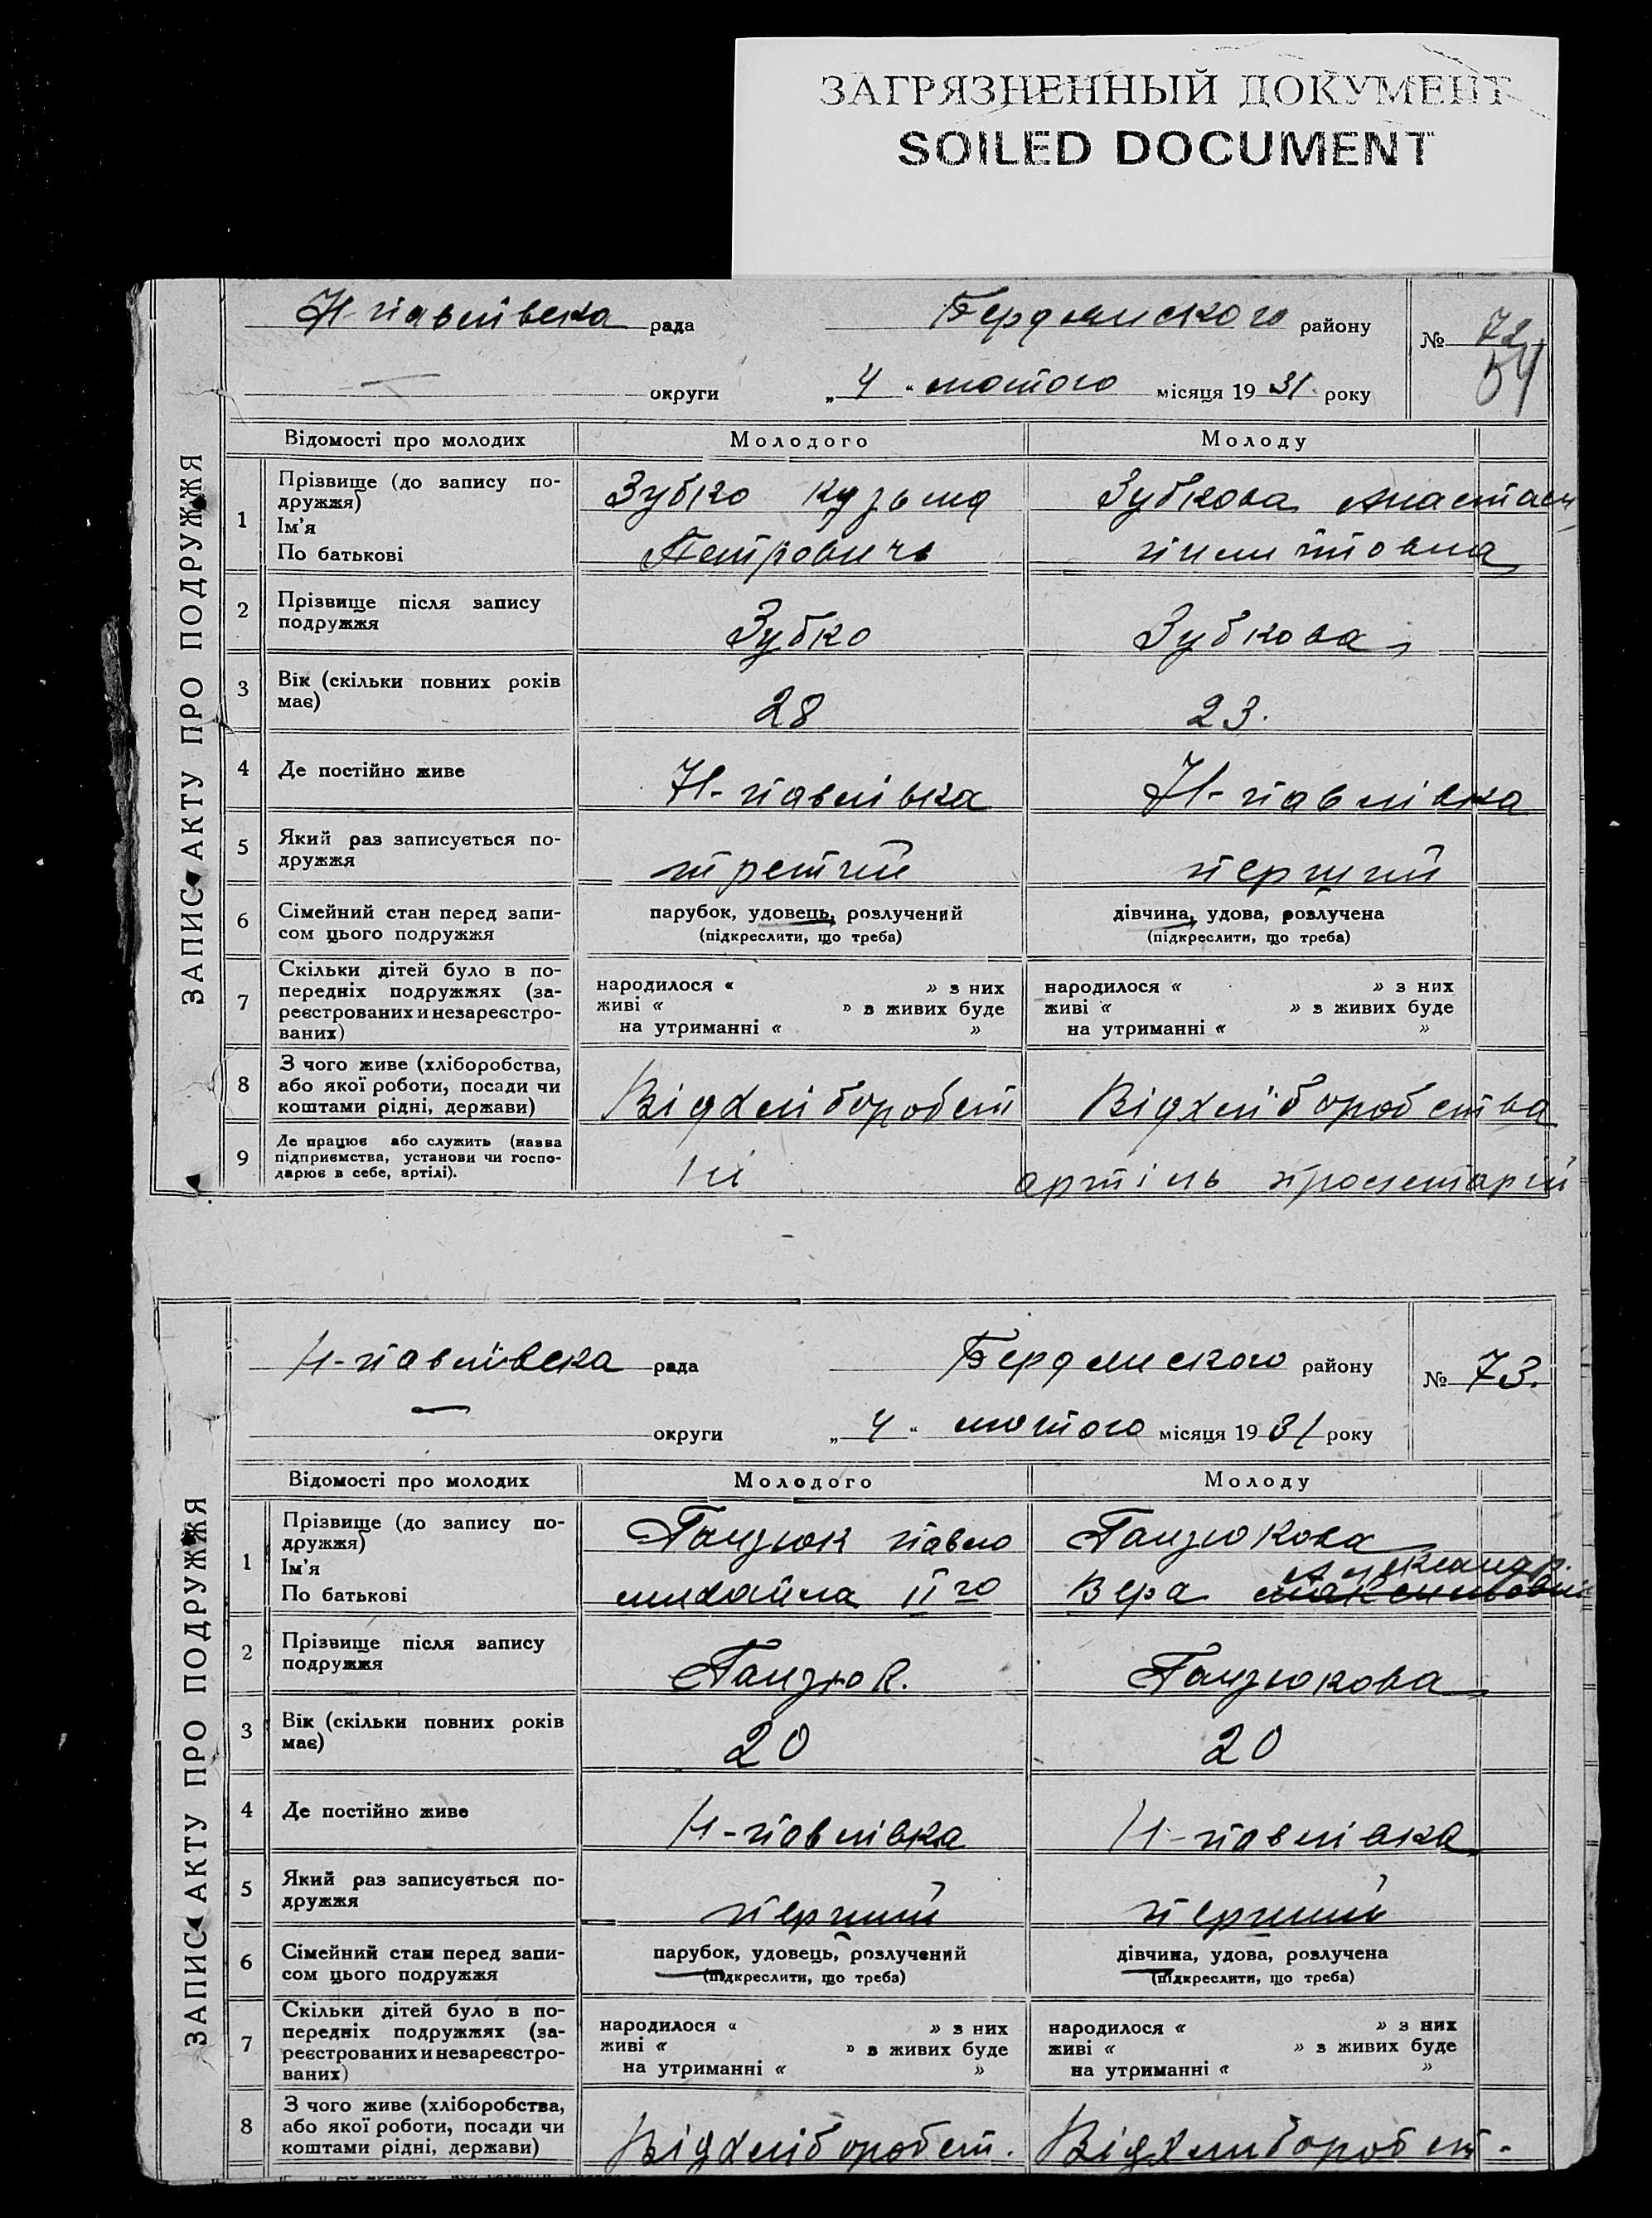 ЗАГРЯЗНЕННЫЙ ДОКУМЕНТ
SOILED DOCUMENT
Н-павлівска рада Бердянского району № 72
54
округи „ 4 “ лютого місяця 19 31 року
ЗАПИС АКТУ ПРО ПОДРУЖЖЯ
Відомості про молодих Молодого Молоду
1 Прізвище (до запису по-
дружжя)
Ім'я
По батькові
Зубко Кузьма
Петровичь
Зубкова Анастасі
2 Прізвище після запису
подружжя
Зубко Зубкова
3 Вік (скільки повних років
має)
28 23.
4 Де постійно живе Н-павлівка Н-павлівка
5 Який раз записується по-
дружжя
третий перший
6 Сімейний стан перед запи-
сом цього подружжя
парубок, удовець, розлучений
(підкреслити, що треба)
дівчина, удова, розлучена
(підкреслити, що треба)
7 Скільки дітей було в по-
передніх подружжях (за-
реєстрованих и незареєстро-
ваних)
народилося « » з них
живі « » в живих буде
на утриманні « »
народилося « » з них
живі « » в живих буде
на утриманні « »
8 З чого живе (хліборобства,
або якої роботи, посади чи
коштами рідні, держави)
Відхліборобст Відхліборобства
9 Де працює або служить (назва
підприємства, установи чи госпо-
дарює в себе, артілі).
ні артіль пролетарій
Н-павлівска рада Бердянского району № 73.
округи „ 4 “ лютого місяця 19 31 року
ЗАПИС АКТУ ПРО ПОДРУЖЖЯ
Відомості про молодих Молодого Молоду
1 Прізвище (до запису по-
дружжя)
Ім'я
По батькові
Ганзюк павло
михайла II го
Ганзюкова
Александр.
Вера
2 Прізвище після запису
подружжя
Ганзюк. Ганзюкова
3 Вік (скільки повних років
має)
20 20
4 Де постійно живе Н-павлівка Н-павлівка
5 Який раз записується по-
дружжя
перший перший
6 Сімейний стан перед запи-
сом цього подружжя
парубок, удовець, розлучений
(підкреслити, що треба)
дівчина, удова, розлучена
(підкреслити, що треба)
7 Скільки дітей було в по-
передніх подружжях (за-
реєстрованих и незареєстро-
ваних)
народилося « » з них
живі « » в живих буде
на утриманні « »
народилося « » з них
живі « » в живих буде
на утриманні « »
8 З чого живе (хліборобства,
або якої роботи, посади чи
коштами рідні, держави)
Відхліборобст. Відхлиборобст.